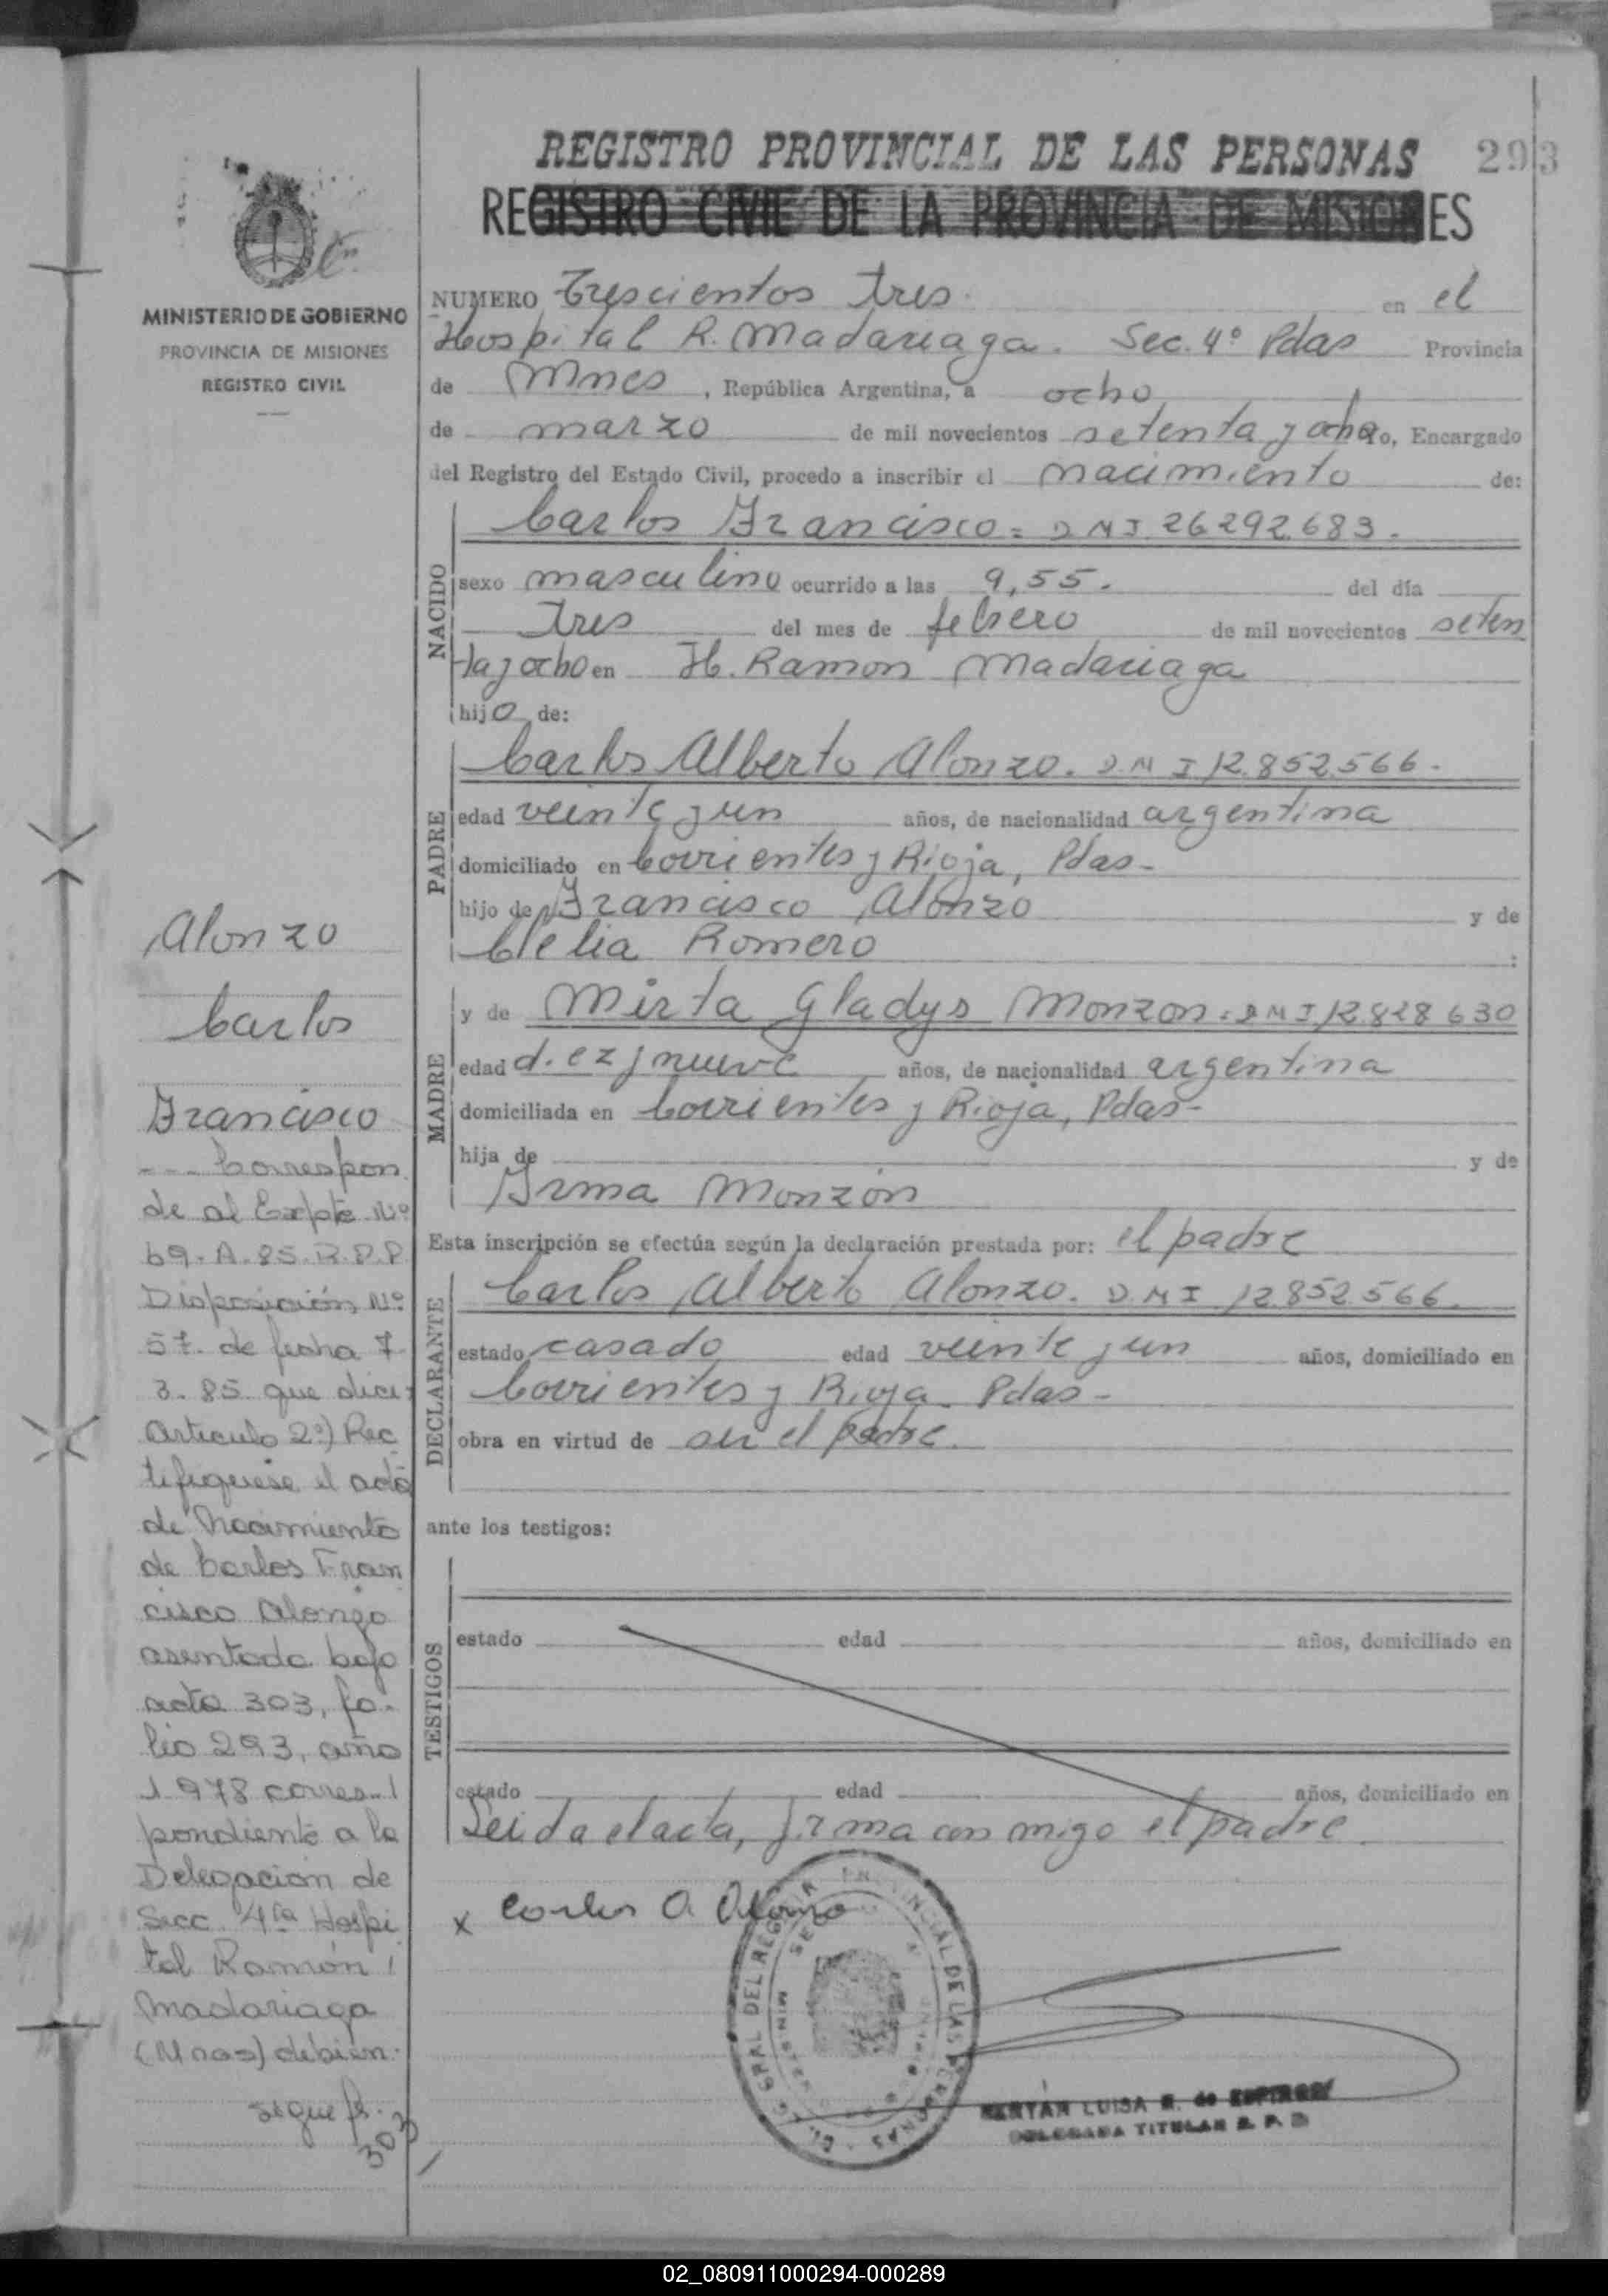 REGISTRO PROVINCIAL DE LAS PERSONAS 293
REGISTRO CIVIL DE LA PROVINCIA DE MISIONES
MINISTERIO DE GOBIERNO
PROVINCIA DE MISIONES
REGISTRO CIVIL
NUMERO Trescientos tres. en el
Hospital R. Madariaga. Sec. 4º Pdas Provincia
de Mnes, República Argentina, a ocho
de marzo de mil novecientos setenta y ocho yo, Encargado
del Registro del Estado Civil, procedo a inscribir el nacimiento de:
NACIDO
Carlos Francisco = DNI 26292.683.
sexo masculino ocurrido a las 9,55. del día
tres del mes de febrero de mil novecientos seten
ta y ocho en H. Ramon Madariaga
hijo de:
PADRE
Carlos Alberto Alonzo. D.N I 12.852.566.
edad veinte y un años, de nacionalidad argentina
domiciliado en Corrientes y Rioja, Pdas-
hijo de Francisco Alonzo y de
Clelia Romero :
MADRE
y de Mirta Gladys Monzon. DNI 12.828.630
edad diez y nueve años, de nacionalidad argentina
domiciliada en Corrientes y Rioja, Pdas-
hija de y de
Irma Monzón
Esta inscripción se efectúa según la declaración prestada por: el padre
DECLARANTE
Carlos Alberto Alonzo. D.N I 12.852.566.
estado casado edad veinte y un años, domiciliado en
Corrientes y Rioja. Pdas-
obra en virtud de ser el padre.
ante los testigos:
TESTIGOS
estado edad años, domiciliado en
estado edad años, domiciliado en
Leida el acta, firma con migo el padre
x Carlos A Alonzo
DEL REGISTRO PROVINCIAL DE LAS PERSONAS
LUISA
TITULAR R. P.
Alonzo
Carlos
Francisco
--- Correspon
de al Expte Nº
69-A-85-R.P.P
Disposición Nº
57. de fecha 7-
3-85 que dice:
Articulo 2º) Rec
tifiquese el acta
de Nacimiento
de Carlos Fran
cisco Alonzo
asentada bajo
acta 303, fo-
lio 293, año
1978 corres-
pondiente a la
Delegación de
Secc. 4ta Hospi
tal Ramón
Madariaga
(Mnes) debien-
sigue fs.
303
02_080911000294-000289